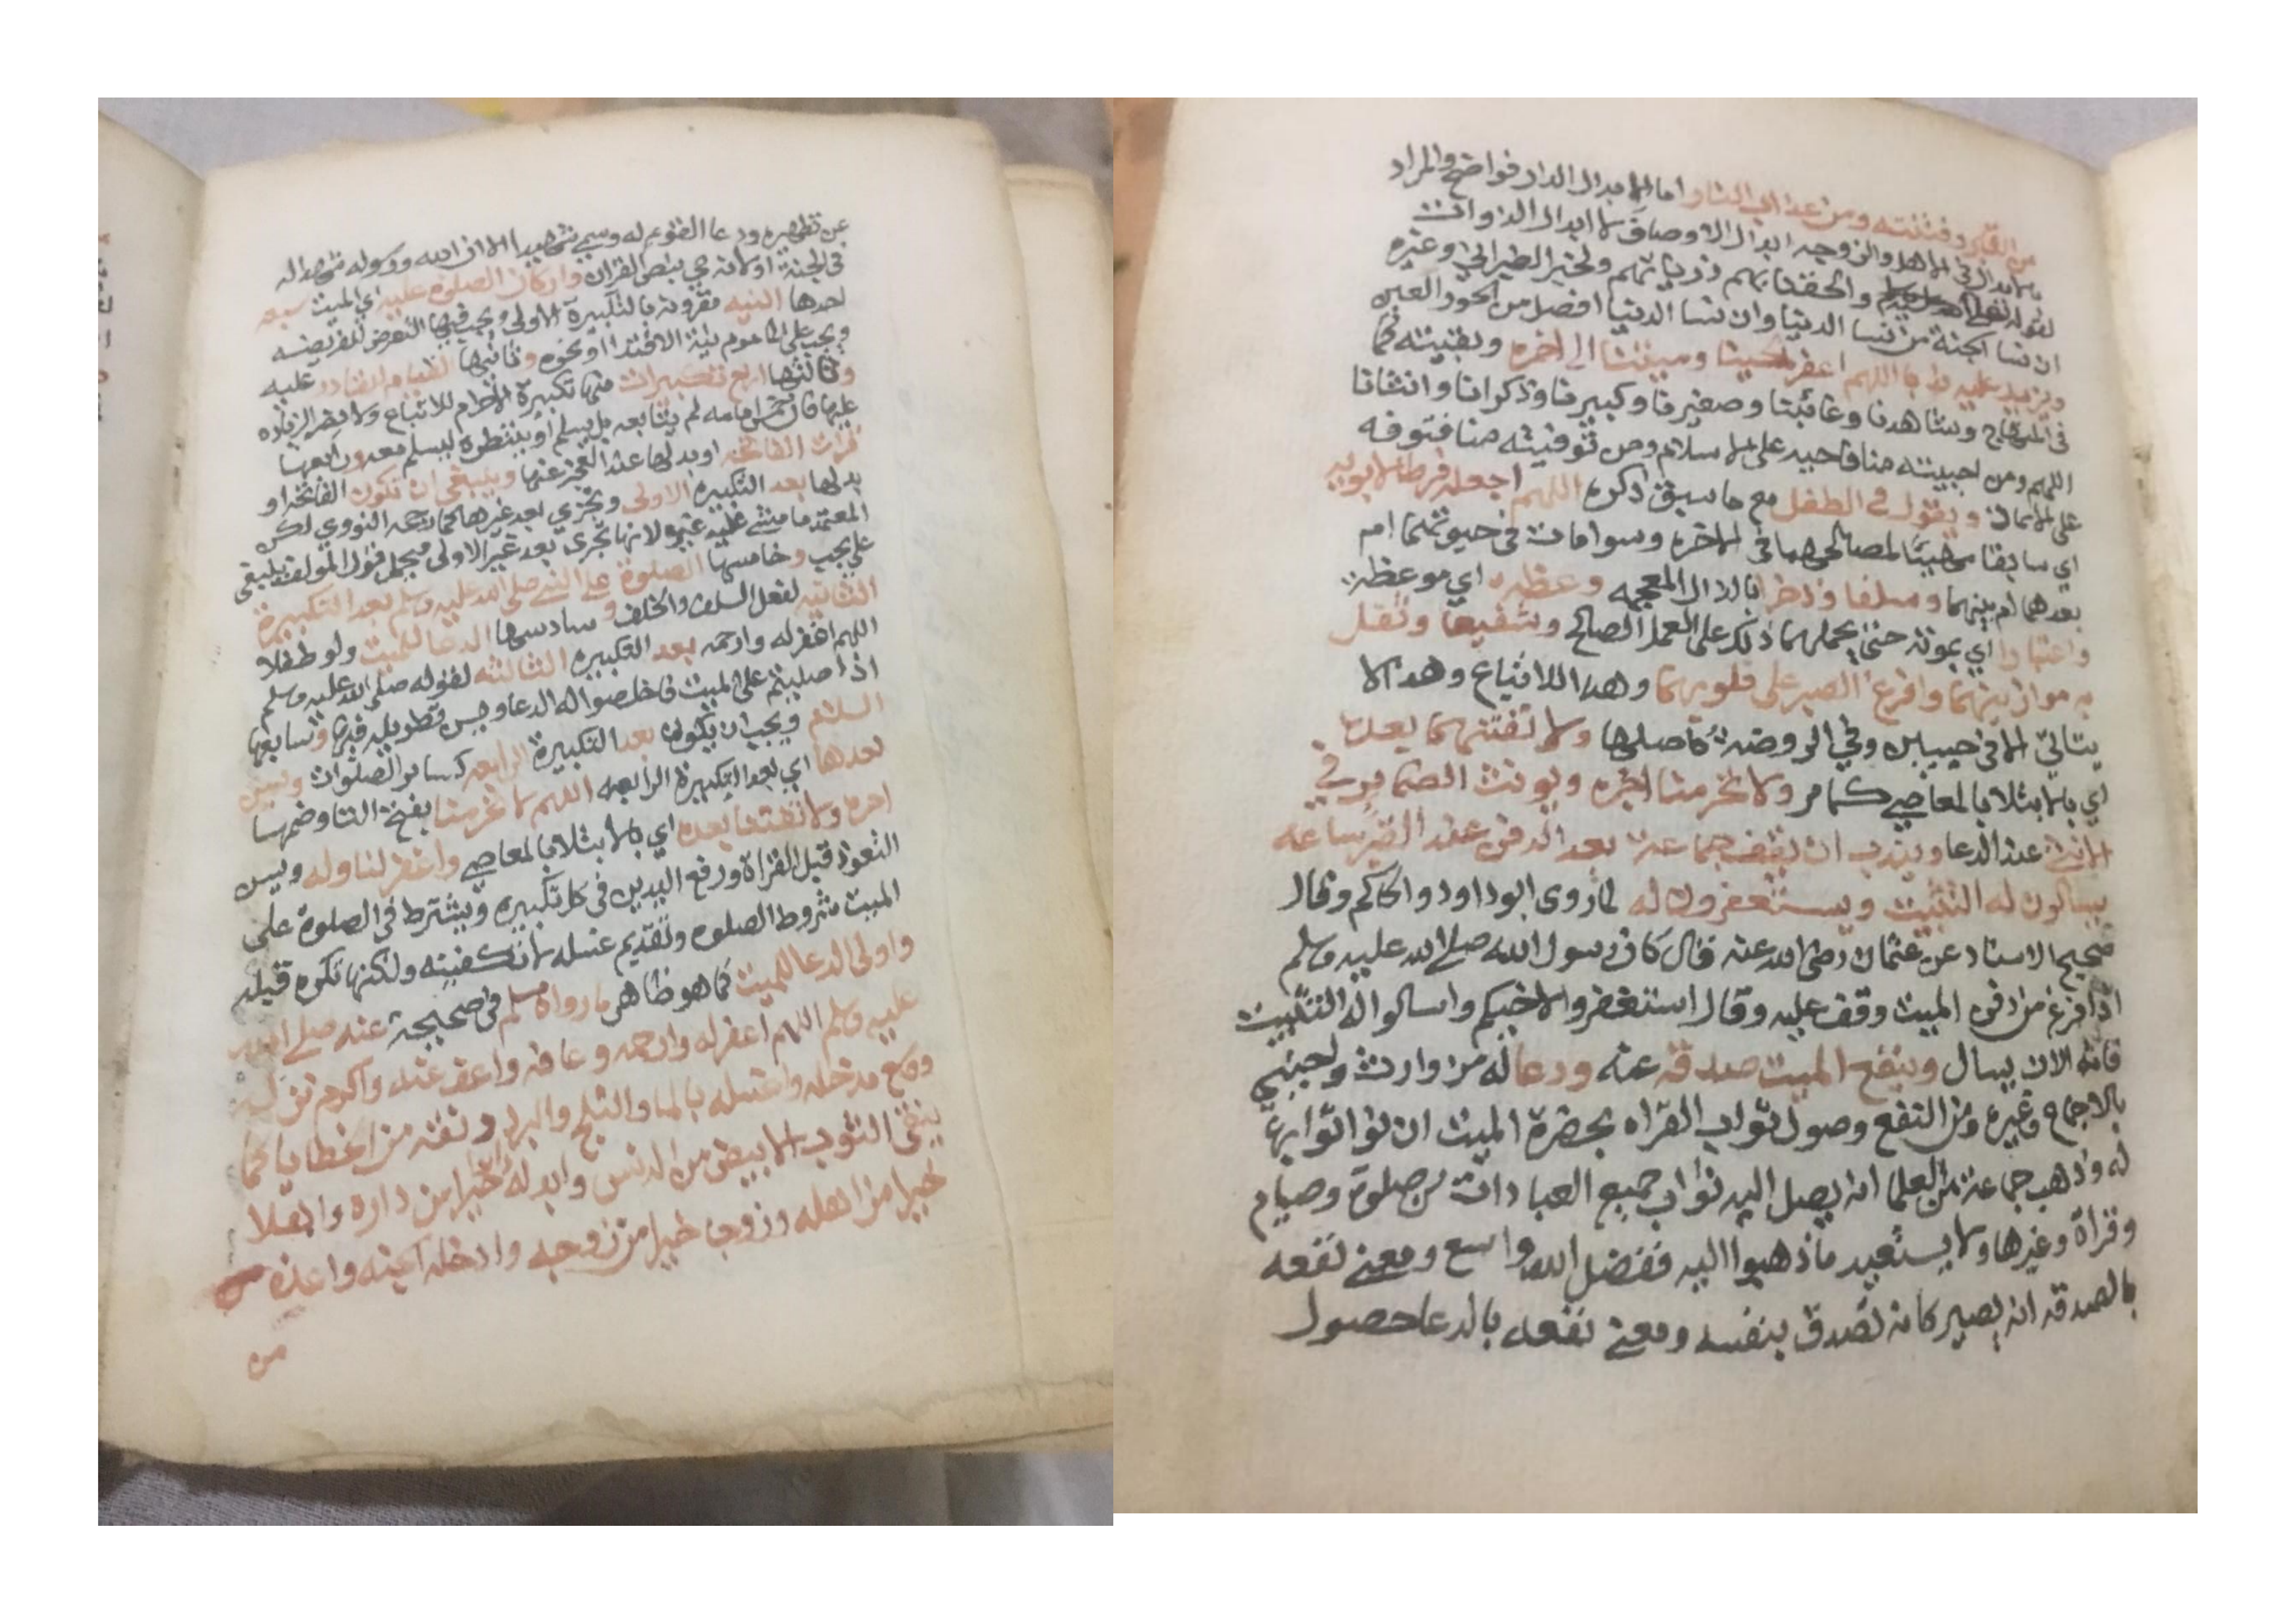 عن تطهيره ودعا القوم له وسمي شهيدا لان الله ورسوله شهدا له
في الجنة اولانه حي بنص القران واركان الصلوة عليه اي الميت سبعه
احدها النيه مقرونة بالتكبيرة الاولى ويجب فيها التعرض للفريضه
ويجب على الماموم نية الاقتدا او نحوه وثانيها القيام للقادر عليه
وثالثها اربع تكبيرات منها تكبيرة الاحرام للاتباع ولا يضر الزياده
عليها فان خمس امامه لم يتابعه بل يسلم او ينتظره ليسلم معه ورابعها
قراة الفاتحه او بدلها عند العجز عنها وينبغي ان تكون الفاتحه او
بدلها بعد التكبيره الاولى وتجزي بعد غيرها كما رجحه النووي لكن
المعتمد ما مشى عليه غيره لانها تجزى بعد غير الاولى فيحمل قول المولف ينبغي
على يجب وخامسها الصلوة على النبي صلى الله عليه وسلم بعد التكبيرة
الثانيه لفعل السلف والخلف وسادسها الدعا للميت ولو طفلا
اللهم اغفر له وارحمه بعد التكبيره الثالثه لقوله صلى الله عليه وسلم
اذا صليتم على الميت فاخلصوا له الدعا ويسن تطويله فيها وسابعها
السلام ويجب ان يكون بعد التكبيرة الرابعه كساير الصلوات ويسن
بعدها اي بعد التكبيرة الرابعه اللهم لا تحرمنا بفتح التا وضمها
اجره ولا تفتنا بعده اي بالابتلا بالمعاصي واغفر لنا وله ويسن
التعوذ قبل القراة ورفع اليدين في كل تكبيره ويشترط في الصلوة على
الميت شروط الصلوه وتقديم غسله لا تكفينه ولكنها تكره قبله
واولى الدعا للميت كما هو ظاهر ما رواه مسلم في صحيحه عنه صلى الله
عليه وسلم اللهم اغفر له وارحمه وعافه واعف عنه واكرم نزله
ووسع مدخله واغسله بالما والثلج والبرد ونقه من الخطايا كما
ينقى الثوب الابيض من الدنس وابدله خيرا من داره واهلا
خيرا من اهله وزوجا خيرا من زوجه وادخله الجنه واعذه من
من
من القبر وفتنته ومن عذاب النار اما الابدال الدار فواضح والمراد
بالابدال في الاهل والزوجه ابدال الاوصاف لا ابدال الذوات
لقوله تعالى والحقنا بهم ذرياتهم ولخبر الطبراني وغيره
ان نسا الجنة من نسا الدنيا وان نسا الدنيا افضل من الحور العين
ويزيد عليه ندبا اللهم اغفر لحينا وميتنا الى اخره وبقيته كما
في المنهاج وشاهدنا وغائبنا وصغيرنا وكبيرنا وذكرانا وانثانا
اللهم ومن احييته منا فاحيه على الاسلام ومن توفيته منا فتوفه
على الايمان ويقول في الطفل مع ما سبق ذكره اللهم اجعله فرطا لابويه
اي سابقا مهييا لمصالحهما في الاخره وسوا مات في حيوتهما ام
بعدهما ام بينهما وسلفا وذخرا بالذال المعجمه وعظه اي موعظة
واعتبارا اي بموته حتى يحملهما ذلك على العمل الصالح وشفيعا وثقل
به موازينهما وافرغ الصبر على قلوبهما وهذا للاتباع وهذا لا
يتاتي الا في حيين وفي الروضة كاصلها ولا تفتنهما بعده
اي بالابتلا بالمعاصي كما مر ولا تحرمنا اجره ويونث الضماير في
الانثى عند الدعا ويندب ان يقف جماعة بعد الدفن عند القبر ساعه
يسالون له التثبيت ويستغفرون له لما روى ابو داود والحاكم وقال
صحيح الاسناد عن عثمان رضي الله عنه قال كان رسول الله صلى الله عليه وسلم
اذا فرغ من دفن الميت وقف عليه وقال استغفروا لاخيكم واسالوا له التثبيت
فانه الان يسال وينفع الميت صدقة عنه ودعا له من وارث واجنبي
بالاجماع وغيره ومن النفع وصول ثواب القراه بحضرة الميت ان نوا ثوابها
له وذهب جماعة من العلما انه يصل اليه ثواب جميع العبادات من صلوة وصيام
وقراة وغيرها ولا يستبعد ما ذهبوا اليه ففضل الله واسع ومعنى نفعه
بالصدقه انه يصير كانه تصدق بنفسه ومعنى نفعه بالدعا حصول